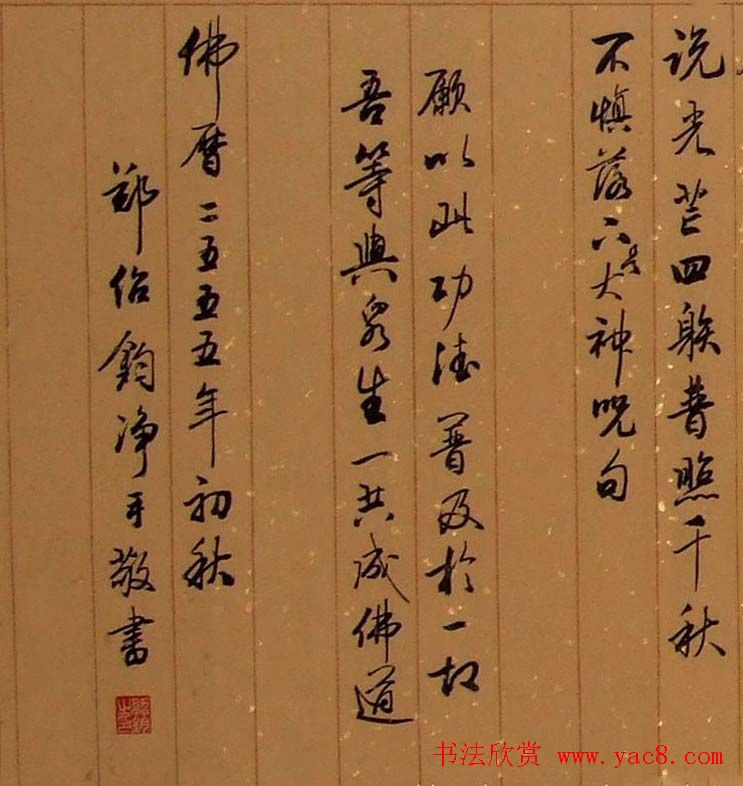 说光芒四射普照千秋
不慎落下是大神咒句
願以此功德普及於一切
吾等與眾生一共成佛道
佛曆二五五五年初秋
鄭紹鈞净手敬書
书法欣赏 www.yac8.com